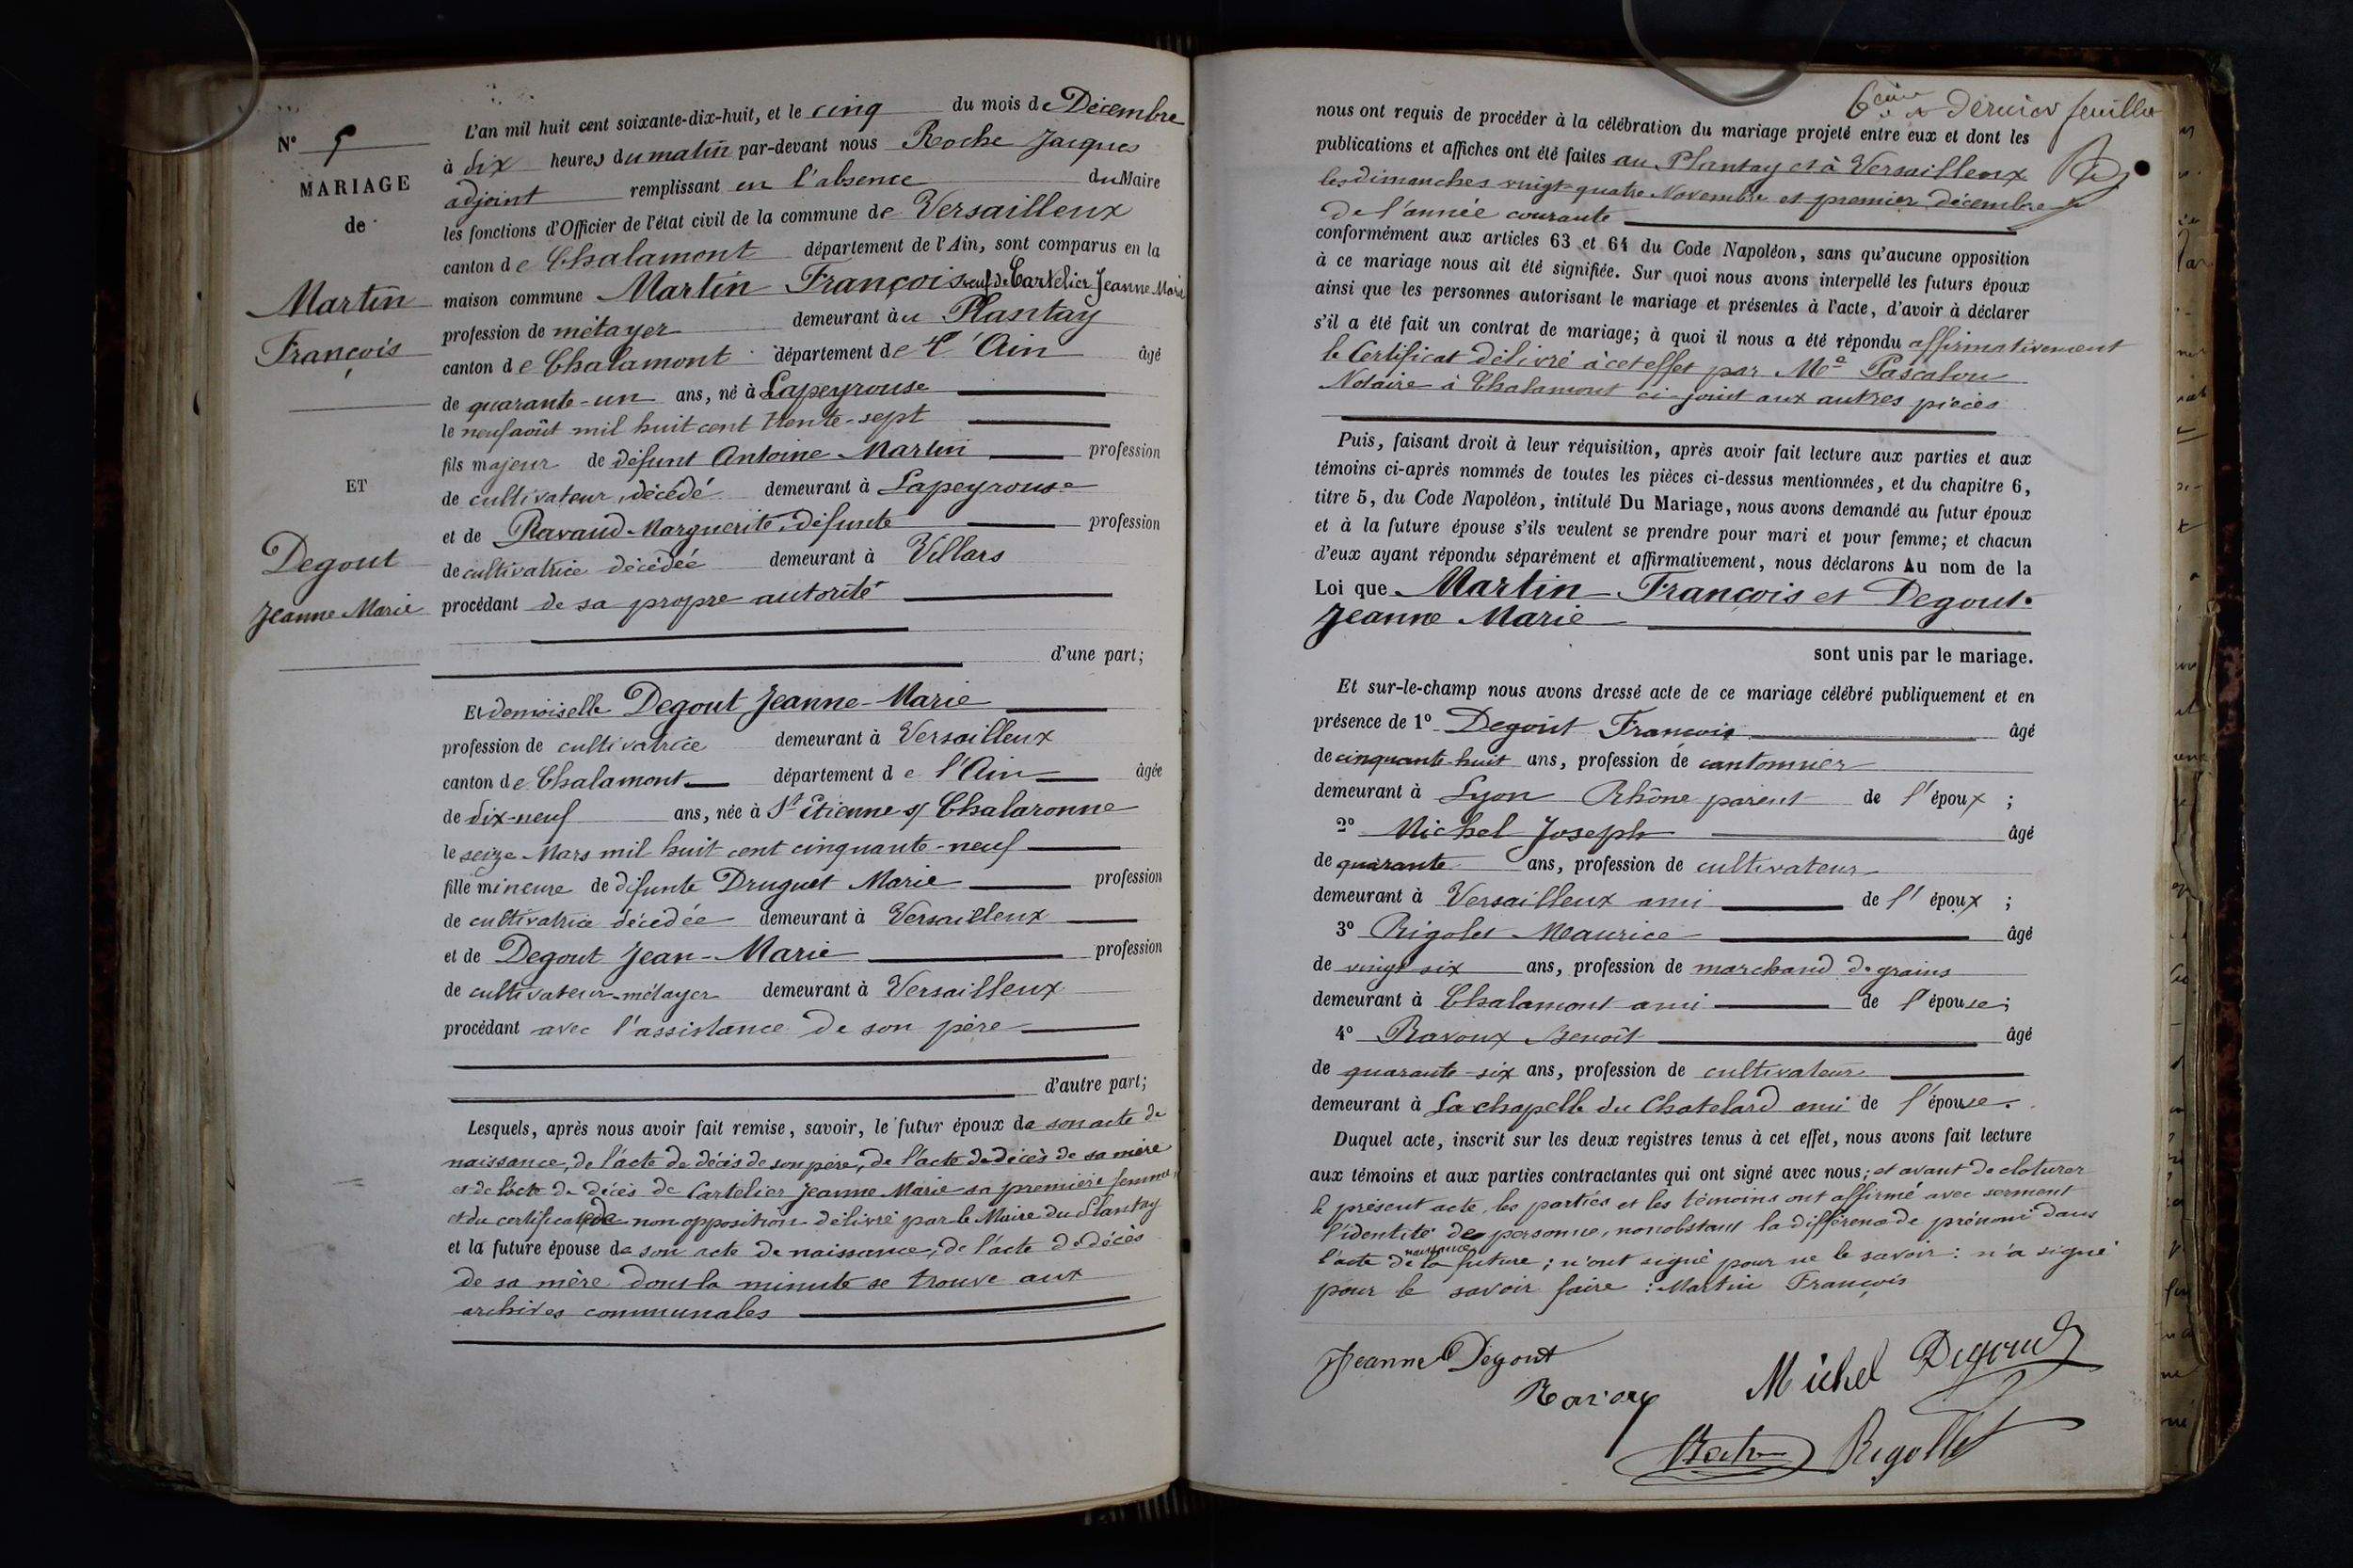 N° 5
MARIAGE
de
Martin
François
ET
Degout
Jeanne Marie
L'an mil huit cent soixante-dix-huit, et le cinq du mois de Décembre
à dix heures du matin par-devant nous Roche Jacques
adjoint remplissant en l'absence du Maire
les fonctions d'Officier de l'état civil de la commune de Versailleux
canton de Chalamont département de l'Ain, sont comparus en la
maison commune Martin François veuf de Cartelier Jeanne Marie
profession de métayer demeurant au Plantay
canton de Chalamont département de l'Ain âgé
de quarante-un ans, né à Lapeyrouse
le neuf août mil huit cent trente-sept
fils majeur de défunt Antoine Martin profession
de cultivateur, décédé demeurant à Lapeyrouse
et de Ravaud Marguerite, défunte profession
de cultivatrice décédée demeurant à Villars
procédant de sa propre autorité
d'une part;
Et demoiselle Degout Jeanne-Marie
profession de cultivatrice demeurant à Versailleux
canton de Chalamont département de l'Ain âgée
de dix-neuf ans, née à St Etienne s/ Chalaronne
le seize Mars mil huit cent cinquante-neuf
fille mineure de défunte Druguet Marie profession
de cultivatrice décédée demeurant à Versailleux
et de Degout Jean-Marie profession
de cultivateur-métayer demeurant à Versailleux
procédant avec l'assistance de son père
d'autre part;
Lesquels, après nous avoir fait remise, savoir, le futur époux de son acte de
naissance, de l'acte de décès de son père, de l'acte de décès de sa mère
et de l'acte de décès de Cartelier Jeanne Marie sa première femme,
et du certificat de non opposition délivré par le Maire du Plantay
et la future épouse de son acte de naissance, de l'acte de décès
de sa mère dont la minute se trouve aux
archives communales
6eme et dernier feuillet
nous ont requis de procéder à la célébration du mariage projeté entre eux et dont les
publications et affiches ont été faites au Plantay et à Versailleux
les dimanches vingt-quatre Novembre et premier décembre
de l'année courante
conformément aux articles 63 et 64 du Code Napoléon, sans qu'aucune opposition
à ce mariage nous ait été signifiée. Sur quoi nous avons interpellé les futurs époux
ainsi que les personnes autorisant le mariage et présentes à l'acte, d'avoir à déclarer
s'il a été fait un contrat de mariage; à quoi il nous a été répondu affirmativement
le Certificat délivré à cet effet par Me Pascalon
Notaire à Chalamont ci-joint aux autres pièces
Puis, faisant droit à leur réquisition, après avoir fait lecture aux parties et aux
témoins ci-après nommés de toutes les pièces ci-dessus mentionnées, et du chapitre 6,
titre 5, du Code Napoléon, intitulé Du Mariage, nous avons demandé au futur époux
et à la future épouse s'ils veulent se prendre pour mari et pour femme; et chacun
d'eux ayant répondu séparément et affirmativement, nous déclarons Au nom de la
Loi que Martin François et Degout
Jeanne Marie
sont unis par le mariage.
Et sur-le-champ nous avons dressé acte de ce mariage célébré publiquement et en
présence de 1° Degout François âgé
de cinquante-huit ans, profession de cantonnier
demeurant à Lyon Rhône parent de l'époux ;
2° Michel Joseph âgé
de quarante ans, profession de cultivateur
demeurant à Versailleux ami de l'époux ;
3° Rigolet Maurice âgé
de vingt six ans, profession de marchand de grains
demeurant à Chalamont ami de l'épouse;
4° Ravoux Benoît âgé
de quarante-six ans, profession de cultivateur
demeurant à La chapelle du Chatelard ami de l'épouse.
Duquel acte, inscrit sur les deux registres tenus à cet effet, nous avons fait lecture
aux témoins et aux parties contractantes qui ont signé avec nous; et avant de cloturer
le présent acte, les parties et les témoins ont affirmé avec serment
l'identité de personne, nonobstant la différence de prénoms dans
l'acte de naissance de la future ; n'ont signé pour ne le savoir : n'a signé
pour le savoir faire : Martin François
Jeanne Degout
Michel Degout
Ravoux
Roche Rigollet